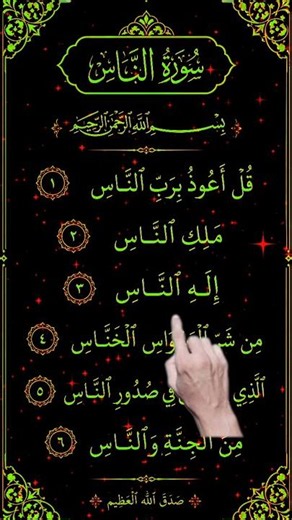 سُورَةُ النَّاسِ
بِسْمِ اللَّهِ الرَّحْمَٰنِ الرَّحِيمِ
قُلْ أَعُوذُ بِرَبِّ ٱلنَّاسِ ١
مَلِكِ ٱلنَّاسِ ٢
إِلَٰهِ ٱلنَّاسِ ٣
مِن شَرِّ ٱلْخَنَّاسِ ٤
ٱلَّذِي صُدُورِ ٱلنَّاسِ ٥
مِنَ ٱلْجِنَّةِ وَٱلنَّاسِ ٦
صَدَقَ ٱللَّٰهُ ٱلْعَظِيم